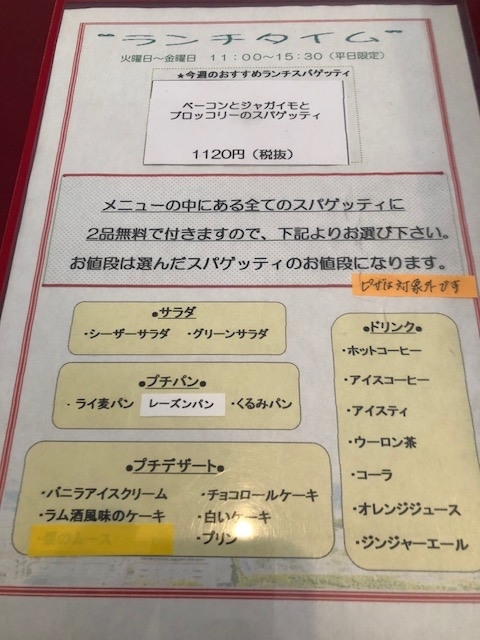 "ランチタイム"
火曜日～金曜日 11:00～15:30(平日限定)
★今週のおすすめランチスパゲッティ
ベーコンとジャガイモと
ブロッコリーのスパゲッティ
1120円(税抜)
メニューの中にある全てのスパゲッティに
2品無料で付きますので、下記よりお選び下さい。
お値段は選んだスパゲッティのお値段になります。
ピザは対象外です
●サラダ●
・シーザーサラダ ・グリーンサラダ
●プチパン●
・ライ麦パン レーズンパン ・くるみパン
●プチデザート●
・バニラアイスクリーム ・チョコロールケーキ
・ラム酒風味のケーキ ・白いケーキ
・プリン
●ドリンク●
・ホットコーヒー
・アイスコーヒー
・アイスティ
・ウーロン茶
・コーラ
・オレンジジュース
・ジンジャーエール